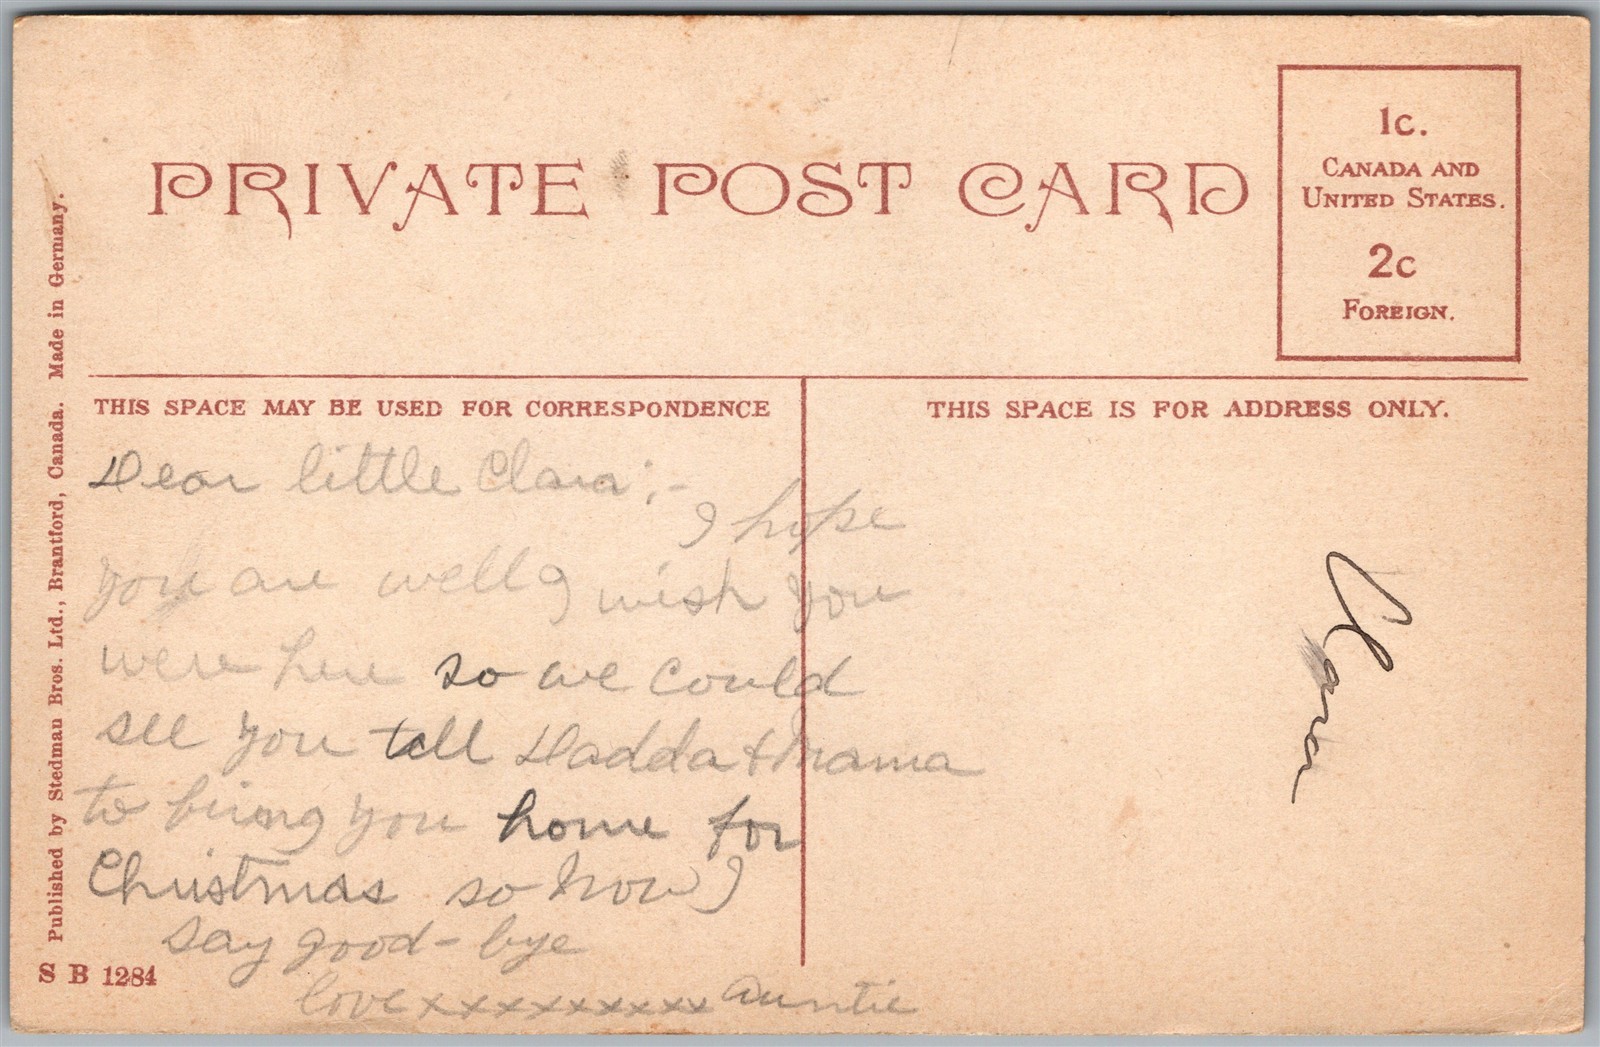 PRIVATE POST CARD
1c.
CANADA AND
UNITED STATES.
2c
FOREIGN.
THIS SPACE MAY BE USED FOR CORRESPONDENCE
THIS SPACE IS FOR ADDRESS ONLY.
Dear little Clara:-
I hope
you are well I wish you
were here so we could
see you tell Dadda & Mama
to bring you home for
Christmas so now I
say good-bye
love xxxxxxxxxx Auntie
Clara
Published by Stedman Bros. Ltd., Brantford, Canada. Made in Germany.
S B 1284